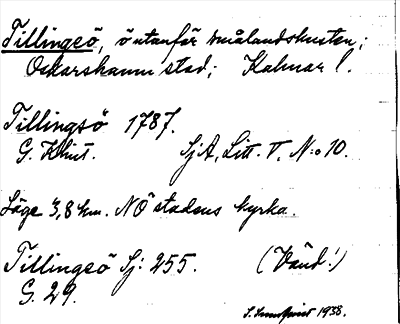 Tillingeö, ö utanför smålandskusten;
Oskarshamn stad; Kalmar l.
Tillingsö 1787.
G. Klint. SjA, Litt. T. N:o 10.
Läge 3,8 km. NÖ stadens kyrka.
Tillingeö Sj: 255. (Vänd!)
G. 29.
S. Sundqvist 1938.